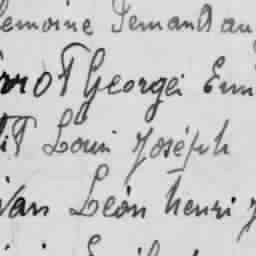 Lemoine Fernand au
rrot Georges Emi
tit Louis Joséph
van Léon henri J